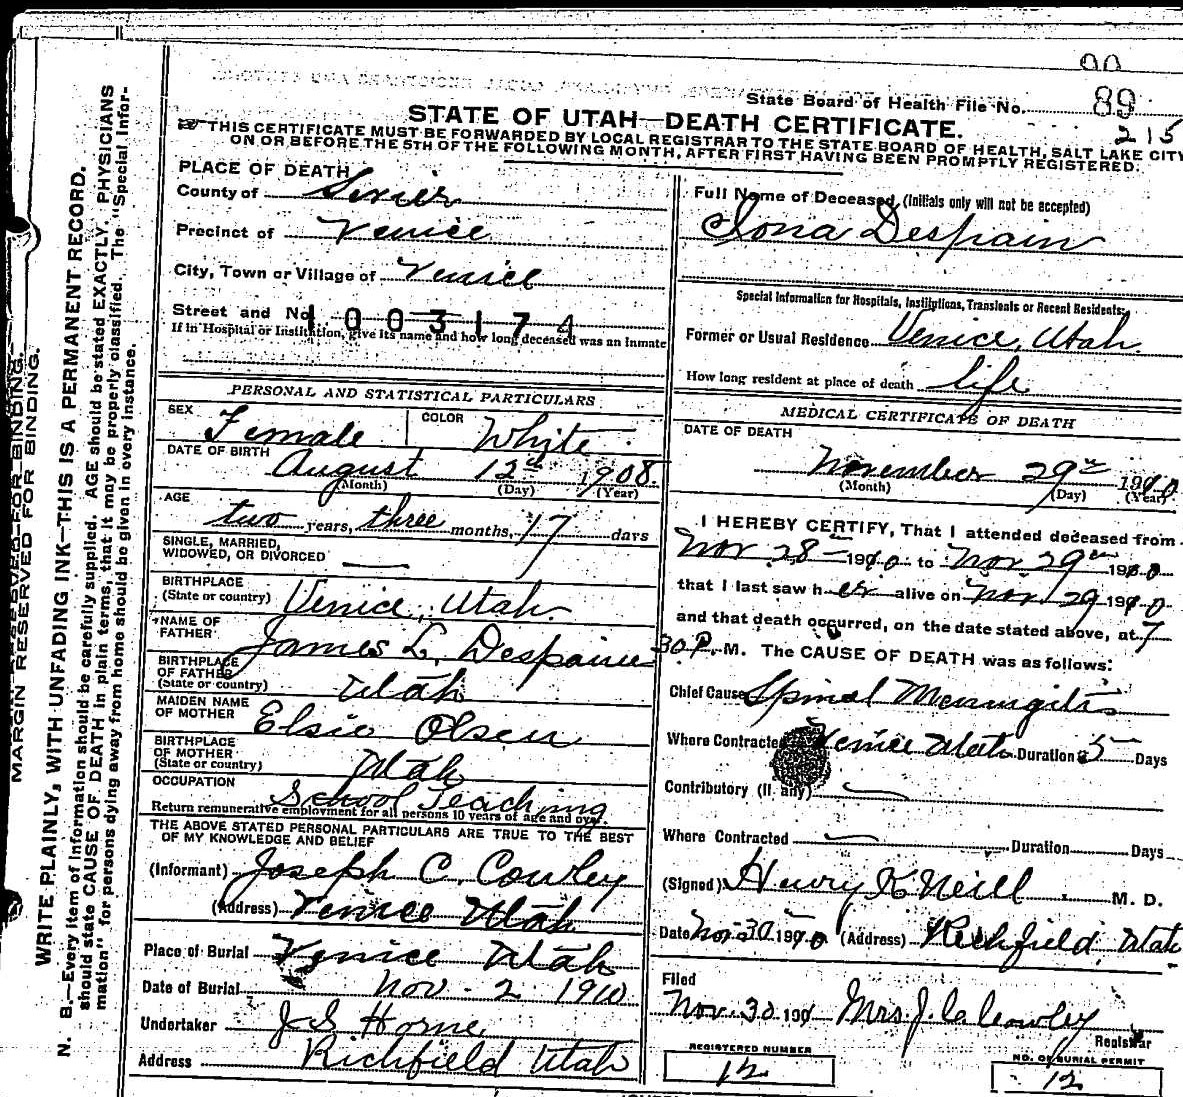 State Board of Health File No. 89
215
STATE OF UTAH—DEATH CERTIFICATE.
THIS CERTIFICATE MUST BE FORWARDED BY LOCAL REGISTRAR TO THE STATE BOARD OF HEALTH, SALT LAKE CITY
ON OR BEFORE THE 5TH OF THE FOLLOWING MONTH, AFTER FIRST HAVING BEEN PROMPTLY REGISTERED.
PLACE OF DEATH
County of Sevier
Precinct of Venice
City, Town or Village of Venice
Street and No.
1003174
If in Hospital or Institution, give its name and how long deceased was an inmate
PERSONAL AND STATISTICAL PARTICULARS
SEX Female COLOR White
DATE OF BIRTH August 12th 1908.
(Month) (Day) (Year)
AGE
two years, three months, 17 days
SINGLE, MARRIED,
WIDOWED, OR DIVORCED
BIRTHPLACE
(State or country) Venice, Utah.
NAME OF
FATHER James L. Despain
BIRTHPLACE
OF FATHER
(State or country) Utah
MAIDEN NAME
OF MOTHER Elsie Olsen
BIRTHPLACE
OF MOTHER
(State or country) Utah
OCCUPATION School Teaching
Return remunerative employment for all persons 10 years of age and over.
THE ABOVE STATED PERSONAL PARTICULARS ARE TRUE TO THE BEST
OF MY KNOWLEDGE AND BELIEF
(Informant) Joseph C. Cowley
(Address) Venice Utah
Place of Burial Venice Utah
Date of Burial Nov. 2 1910
Undertaker J S Horne
Address Richfield Utah
Full Name of Deceased (Initials only will not be accepted)
Iona Despain
Special Information for Hospitals, Institutions, Transients or Recent Residents:
Former or Usual Residence Venice, Utah.
How long resident at place of death life
MEDICAL CERTIFICATE OF DEATH
DATE OF DEATH
November 29th 1910
(Month) (Day) (Year)
I HEREBY CERTIFY, That I attended deceased from
Nov 28th 1910 to Nov 29th 1910
that I last saw her alive on Nov 29 1910
and that death occurred, on the date stated above, at 7
30 P. M. The CAUSE OF DEATH was as follows:
Chief Cause Spinal Meningitis
Where Contracted Venice Utah Duration 5 Days
Contributory (If any)
Where Contracted Duration Days
(Signed) Henry K Neill M. D.
Date Nov. 30 1910 (Address) Richfield. Utah
Filed
Nov. 30 191 Mrs J. Cowley
Registrar
REGISTERED NUMBER
12
NO. OF BURIAL PERMIT
12
MARGIN RESERVED FOR BINDING.
WRITE PLAINLY, WITH UNFADING INK—THIS IS A PERMANENT RECORD.
N. B.—Every item of information should be carefully supplied. AGE should be stated EXACTLY. PHYSICIANS
should state CAUSE OF DEATH in plain terms, that it may be properly classified. The "Special Infor-
mation" for persons dying away from home should be given in every instance.